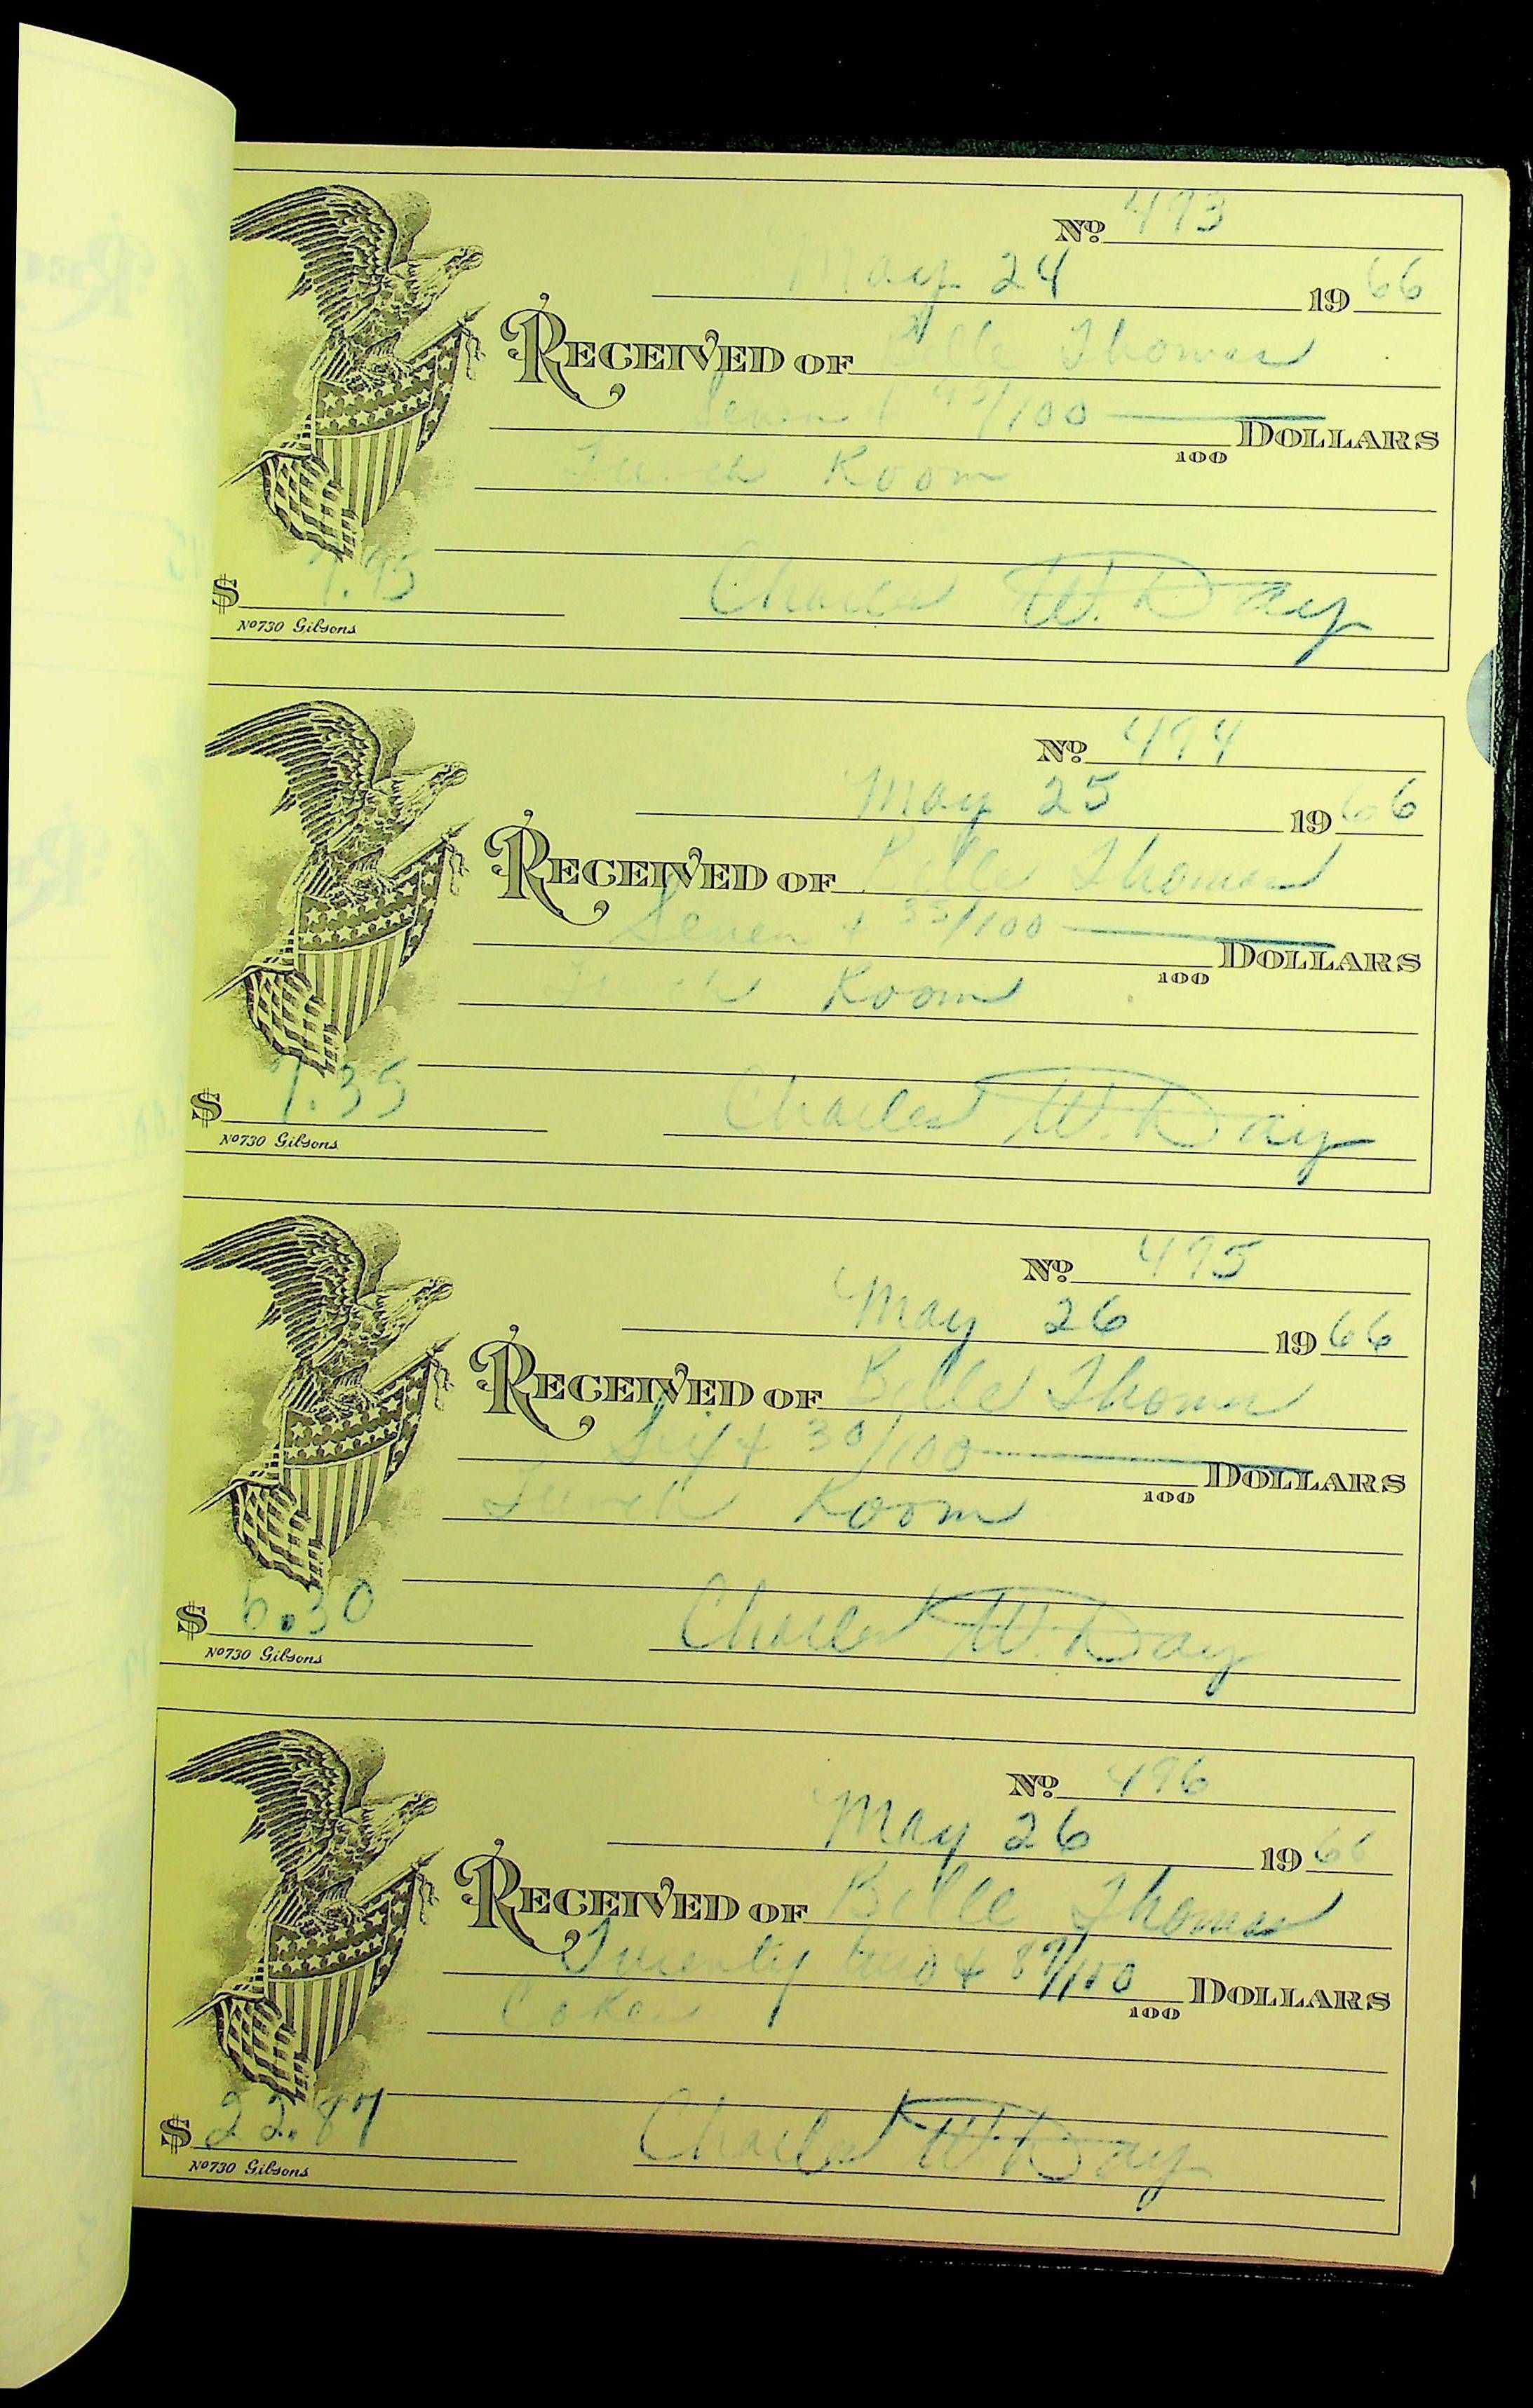 Nº 493
May 24 1966
RECEIVED OF Belle Thomas
Seven & 95/100 DOLLARS
100
Lunch Room
$ 7.95 Charles W. Day
Nº730 Gibsons
Nº 494
May 25 1966
RECEIVED OF Belle Thomas
Seven & 35/100 DOLLARS
100
Lunch Room
$ 7.35 Charles W. Day
Nº730 Gibsons
Nº 495
May 26 1966
RECEIVED OF Belle Thomas
Six & 30/100 DOLLARS
100
Lunch Room
$ 6.30 Charles W. Day
Nº730 Gibsons
Nº 496
May 26 1966
RECEIVED OF Belle Thomas
Twenty two & 87/100 DOLLARS
100
Cokes
$ 22.87 Charles W. Day
Nº730 Gibsons